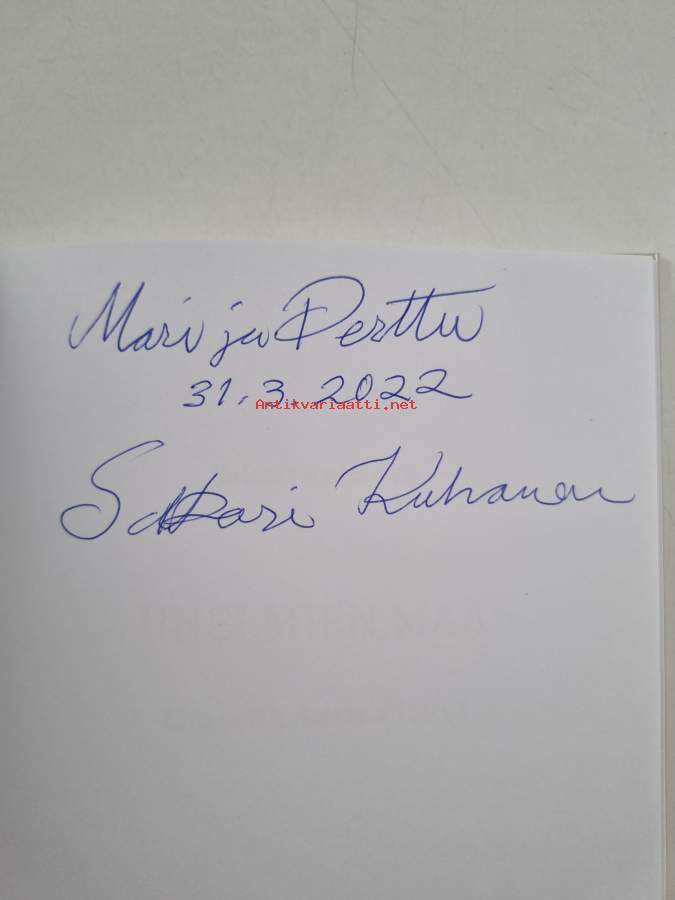 Mari ja Perttu
31.3.2022
Antikvariaatti.net
Sakari Kuhanen